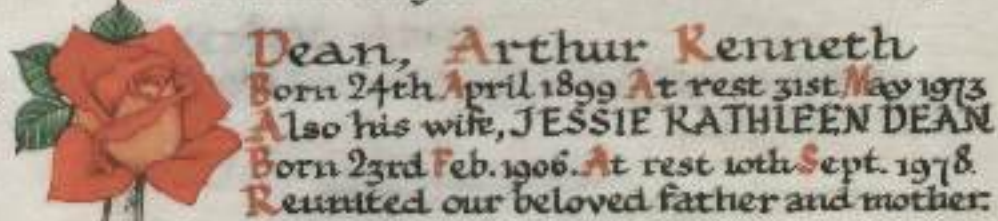 Dean, Arthur Kenneth
Born 24th April 1899 At rest 31st May 1973
Also his wife, JESSIE KATHLEEN DEAN
Born 23rd Feb. 1906. At rest 10th Sept. 1978.
Reunited our beloved father and mother.